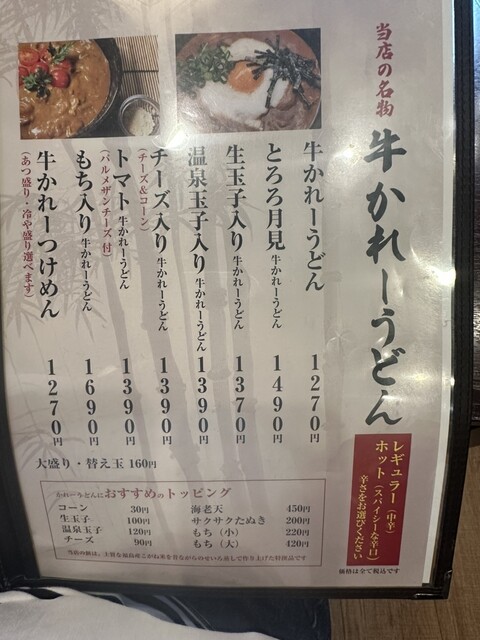 当店の名物
牛かれーうどん
レギュラー（中辛）
ホット（スパイシーな辛口）
辛さをお選びください
牛かれーうどん 1270円
とろろ月見 牛かれーうどん 1490円
生玉子入り 牛かれーうどん 1370円
温泉玉子入り 牛かれーうどん 1390円
チーズ入り 牛かれーうどん 1390円
（チーズ&コーン）
トマト 牛かれーうどん 1390円
（パルメザンチーズ付）
もち入り 牛かれーうどん 1690円
牛かれーつけめん 1270円
（あつ盛り・冷や盛り選べます）
大盛り・替え玉 160円
かれーうどんにおすすめのトッピング
コーン 30円
生玉子 100円
温泉玉子 120円
チーズ 90円
海老天 450円
サクサクたぬき 200円
もち（小） 220円
もち（大） 420円
価格は全て税込です